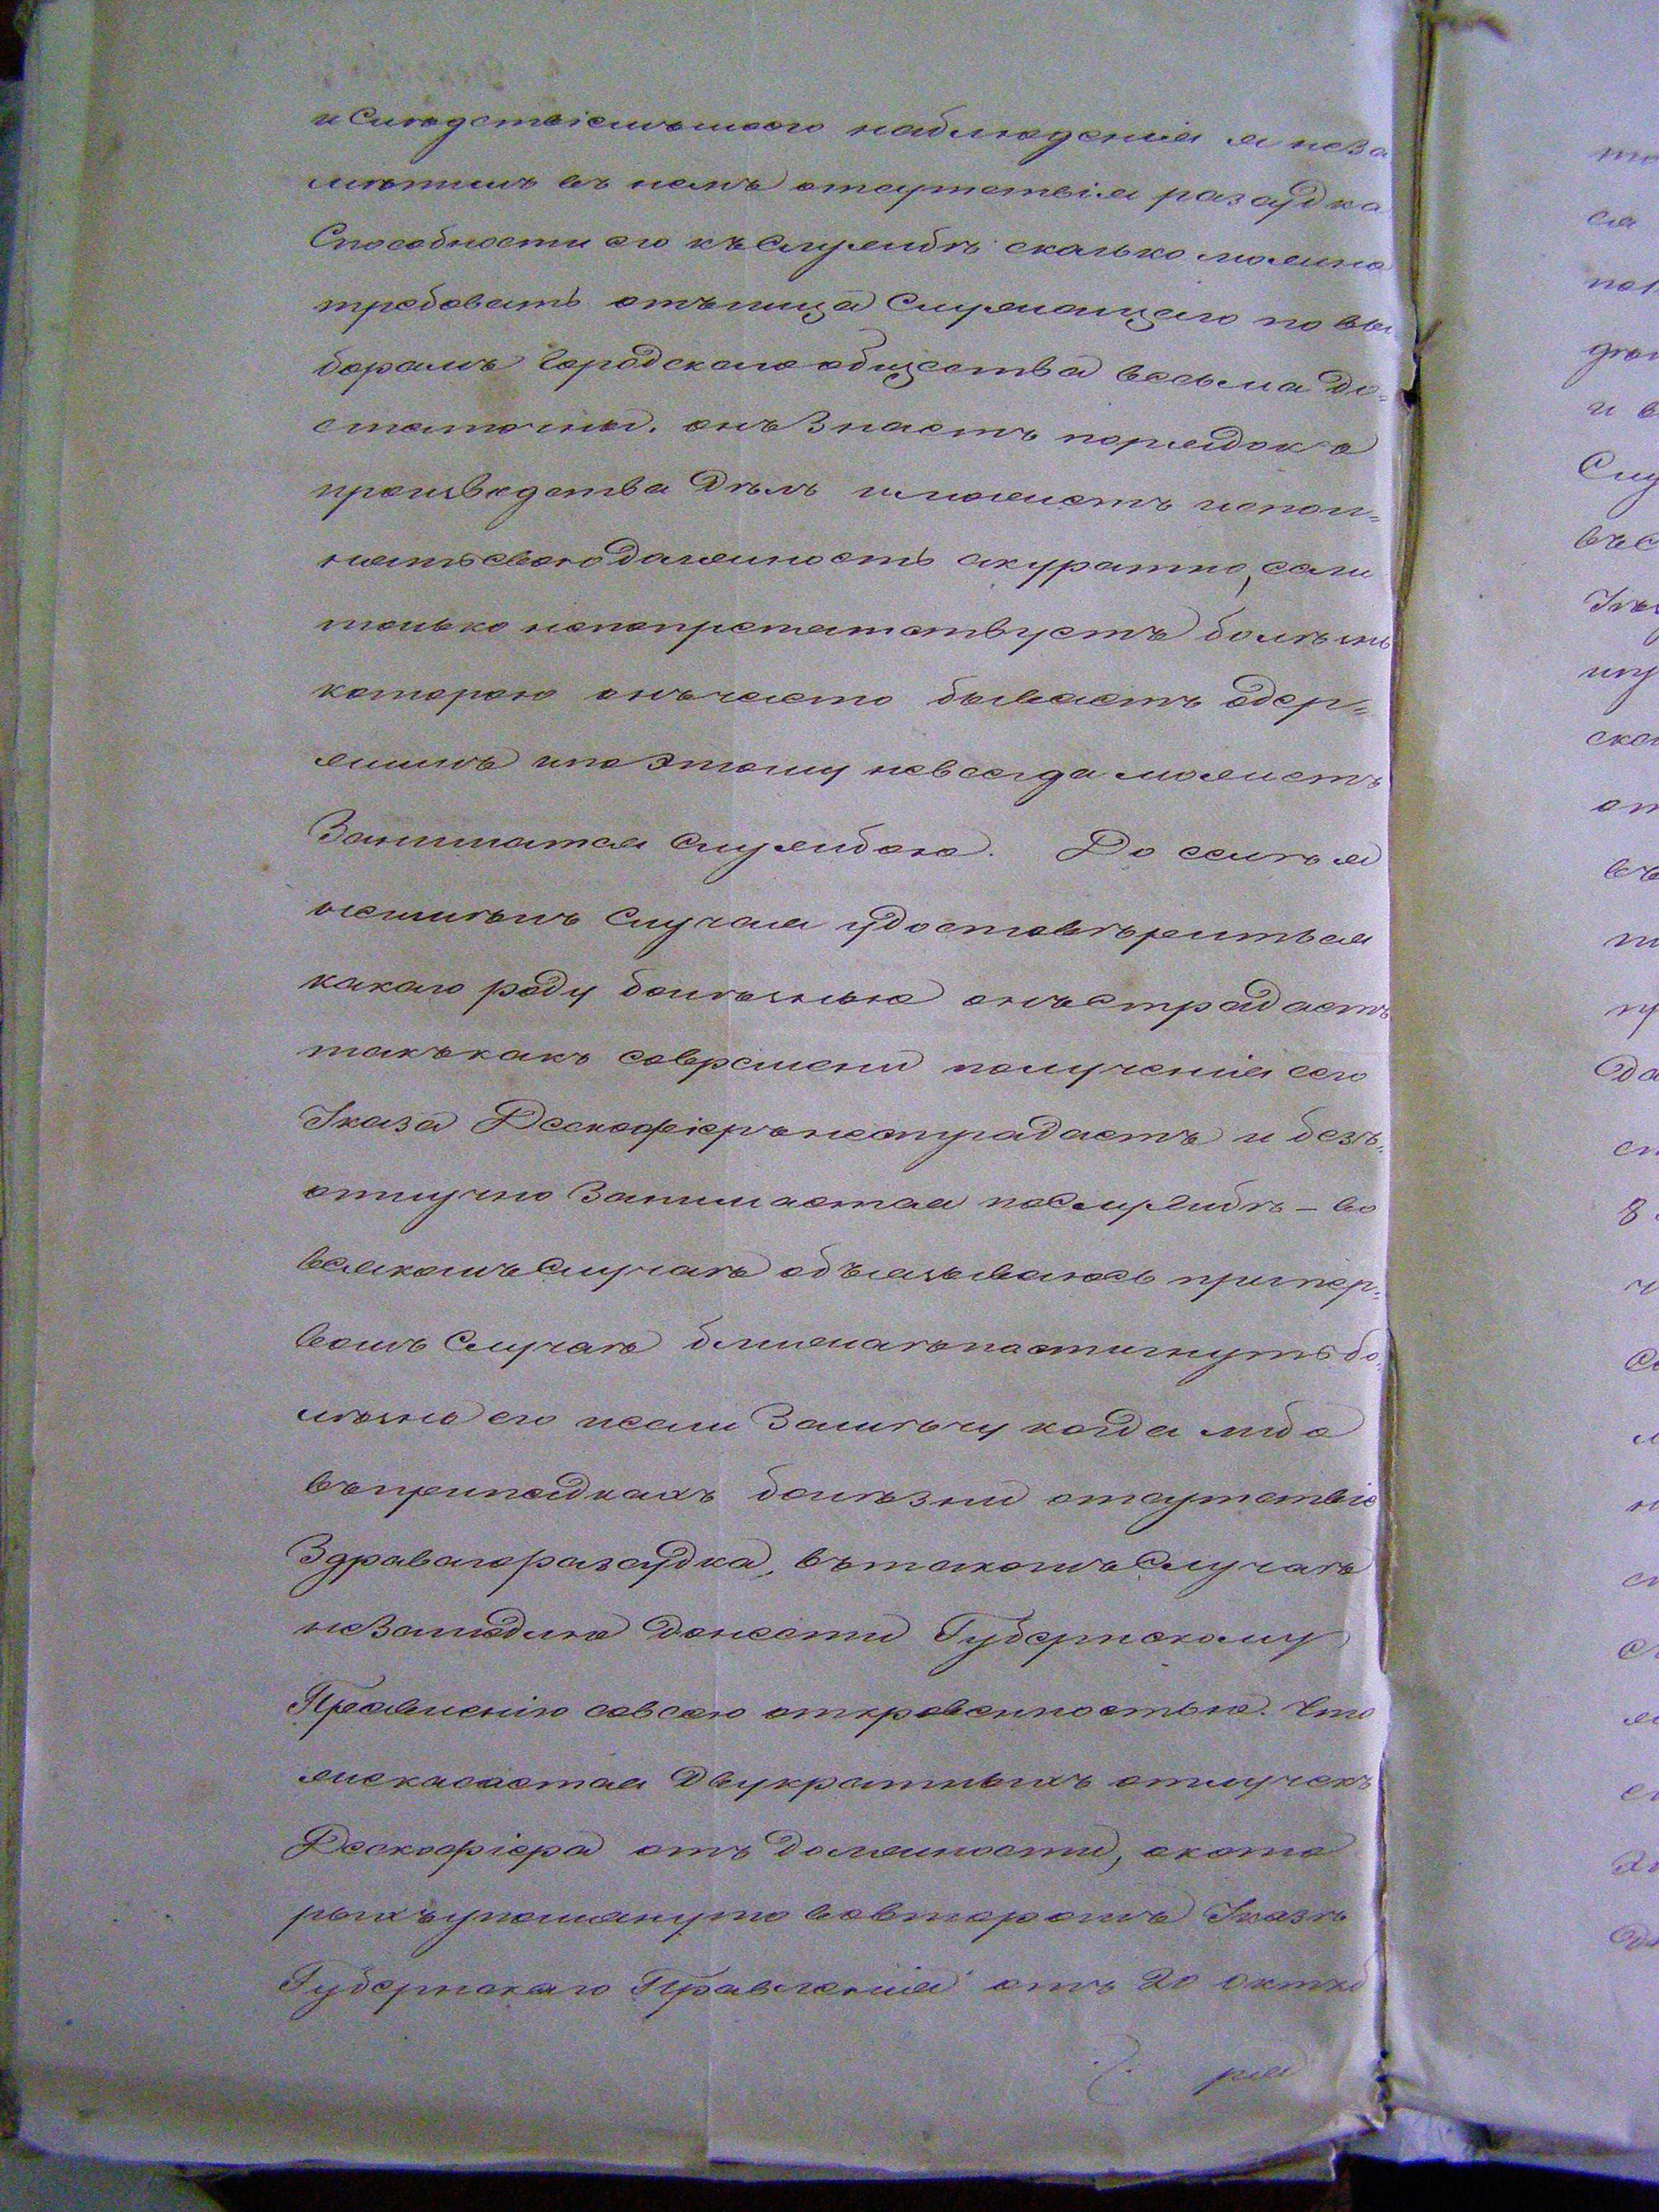 наблюденія я неза
мѣтилъ въ немъ отсутствія разсудка
Способности его къ Службѣ сколько можно
требовать отълица Служащаго по вы
борамъ Городскаго общества весьма до=
статочны. онъ Знаетъ порядокъ
производства Дѣлъ иможетъ испол=
нять свою Должность акуратно, если
только непопрепятствуетъ болѣзнь
которою онъ часто бываетъ одер=
жимъ ипо Этому невсегда можетъ
Заниматся Службою. До селѣ я
неимѣлъ Случая удостовѣриться
какаго роду болѣзнью онъ страдаетъ
такъ какъ современи полученія сего
Указа Дескофіеръ нестрадаетъ и безъ=
отлучно Занимается поСлужбѣ – во
всякомъ Случаѣ объязываюсь припер=
вомъ Случаѣ ближаѣ постигнуть бо=
лѣзнь его иесли Замѣчу когда либо
въ припадкахъ болѣзни отсутствіе
Здраваго разсудка, въ такомъ Случаѣ
не Замедлю Донести Губернскому
Правленію совсею откровенностью. Что
жекасается Двукратныхъ отлучекъ
Дескофіера отъ Должности, окото
рыхъ упомянуто вовторомъ Указѣ
Губернскаго Правленія отъ 20 октяб
ря